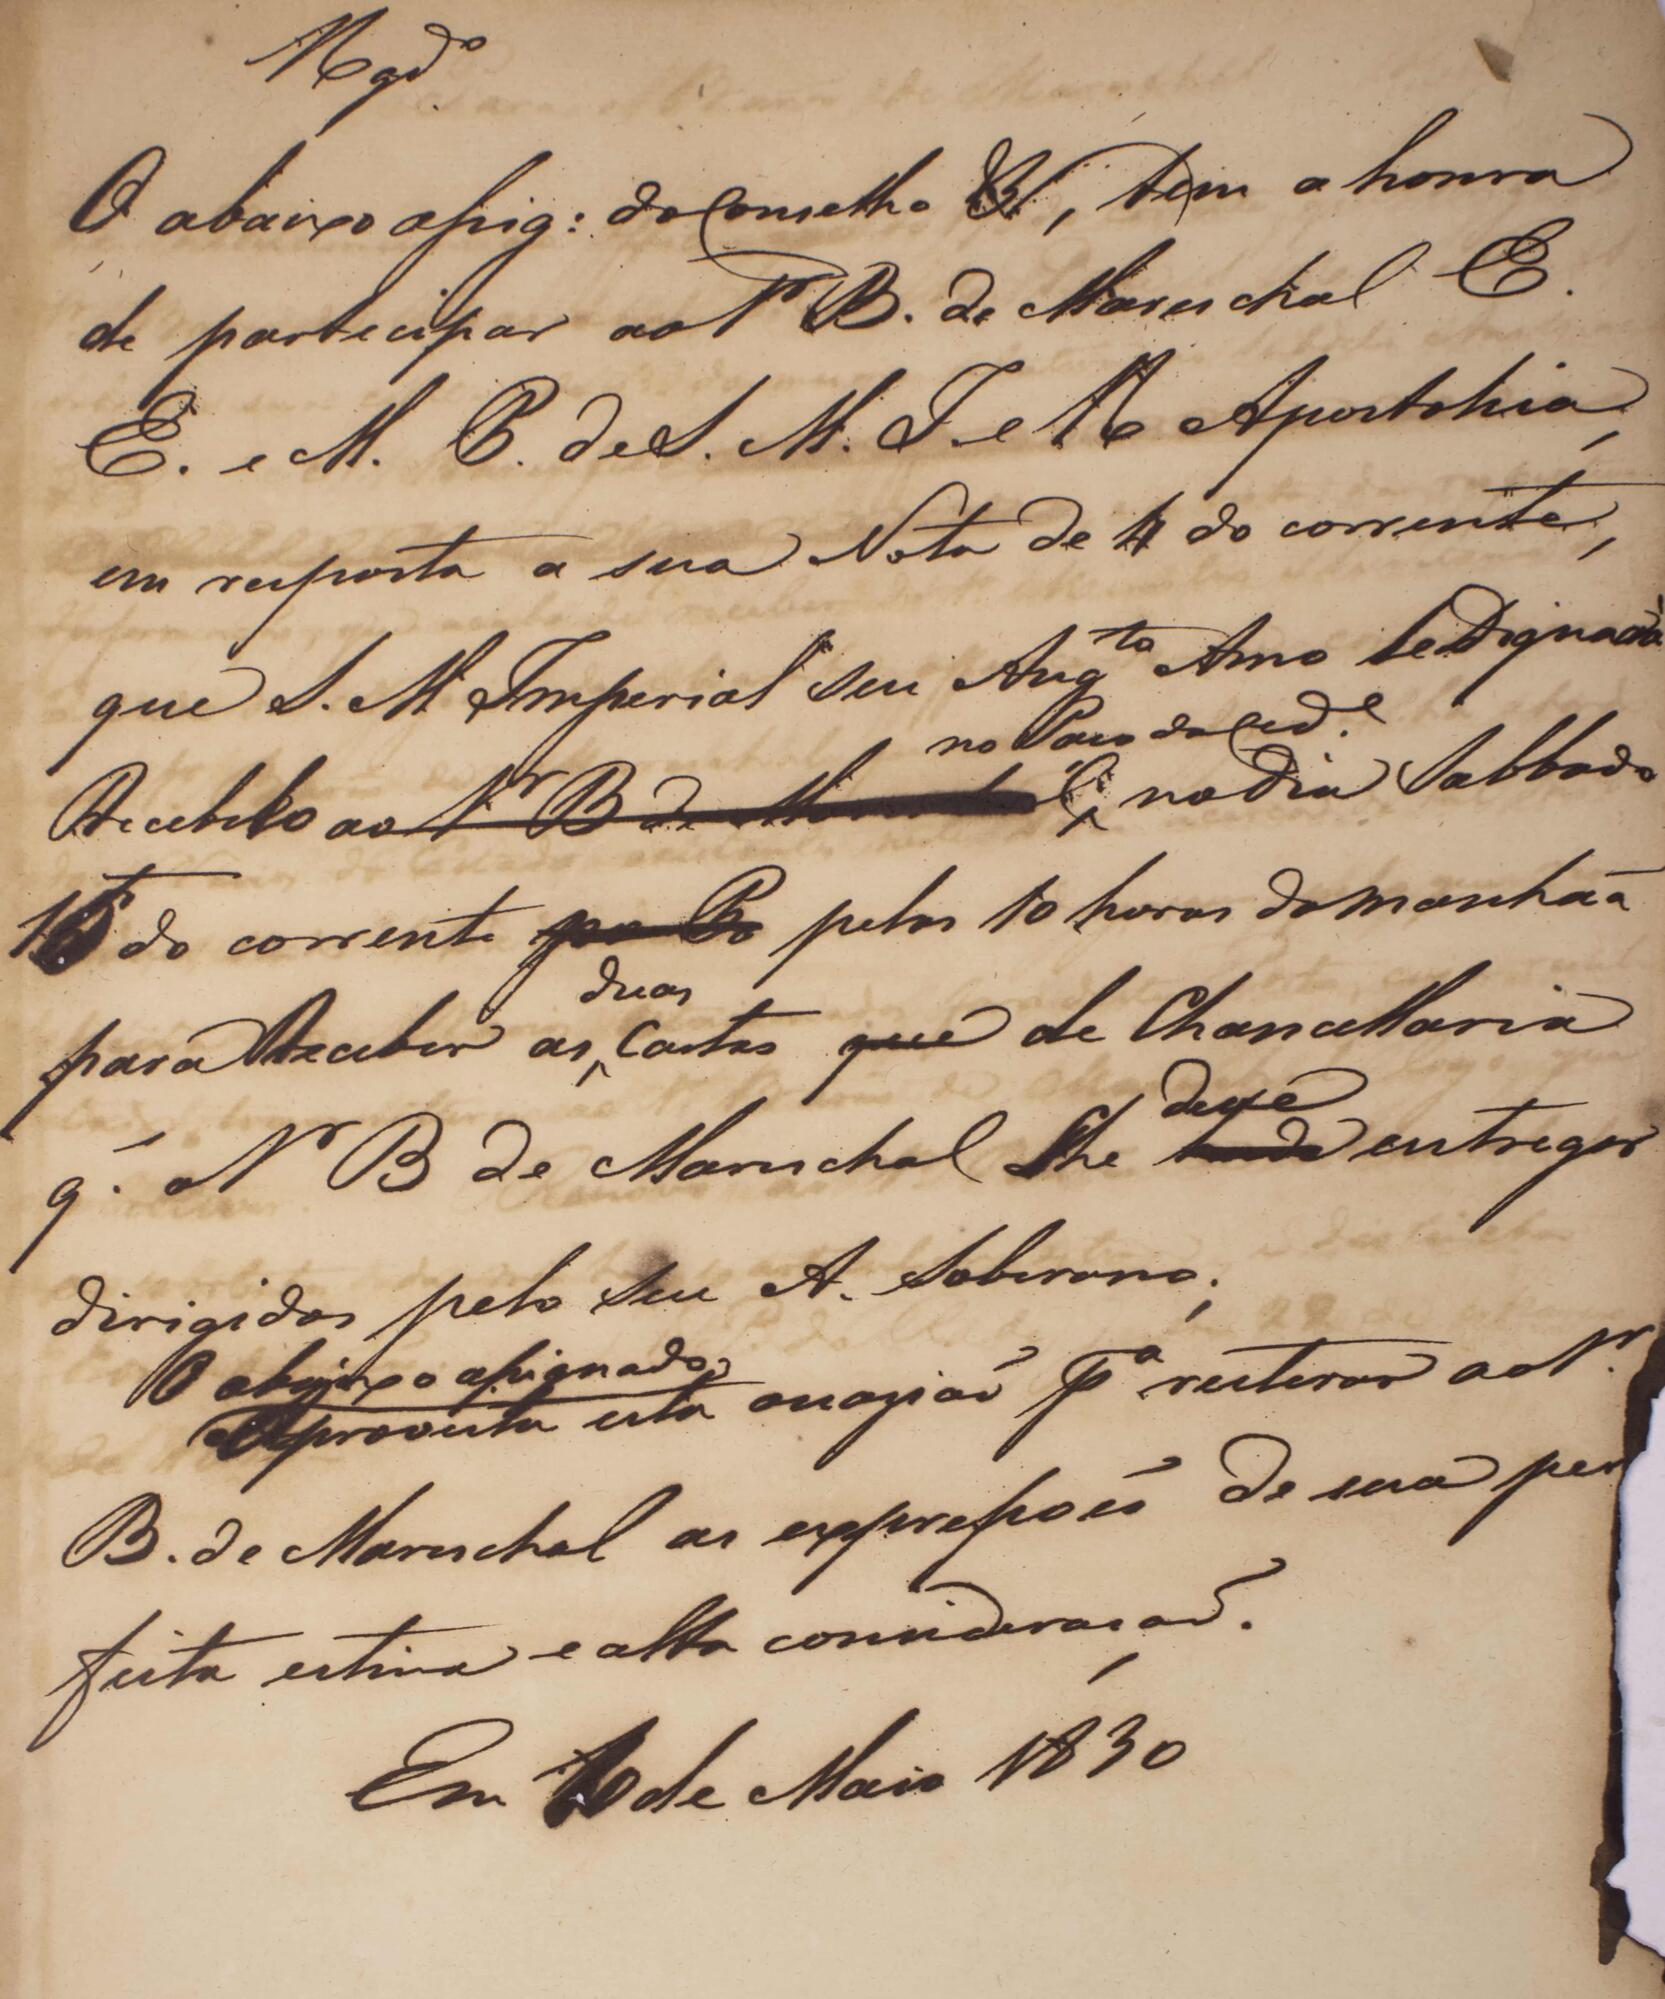 Rgdo.
O abaixo assig: do Conselho &, tem a honra
de partecipar ao Sr B. de Mareschal E.
E. e M. P. de S. M. I. e R. Apostolica,
em resposta a sua Nota de 4 do corrente,
que S. M. Imperial seu Augto Amo Se Dignará
no Paço da Cide.
Recebelo ao Sr B de Mareschal, no dia Sabbado
15 do corrente pelas 10 horas da manhãa
duas
para Receber as Cartas que de Chancellaria
deve
q. o Sr B de Mareschal lhe entregar
dirigidas pelo seu A. Soberano;
O abaixo assignado
Aproveita esta occazião Pa reiterar ao Sr.
B. de Mareschal as expressões de sua per
feita estima e alta consideração.
Em de Maio 1830